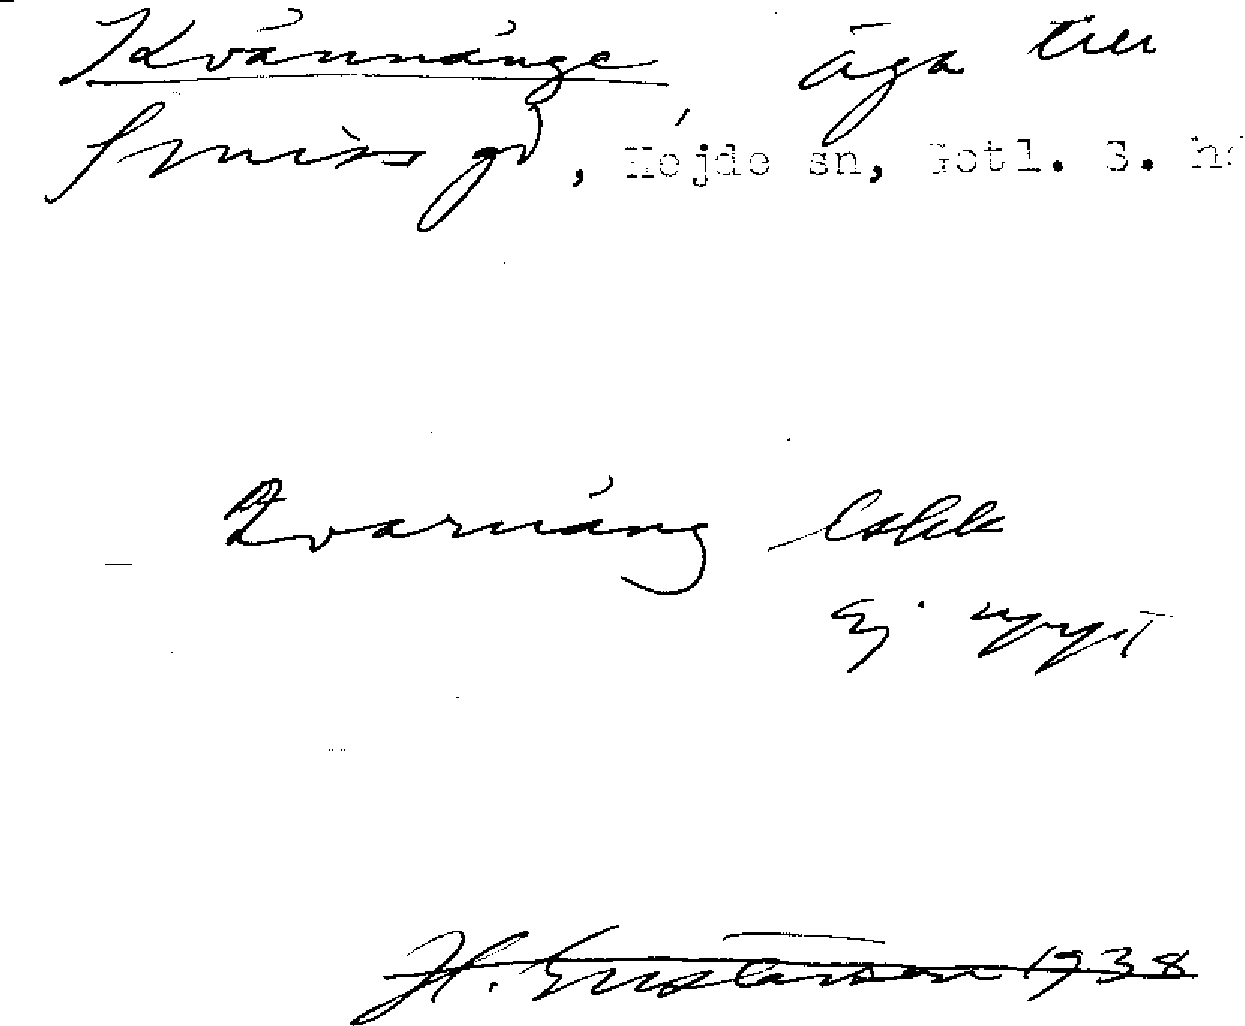 Kvännänge äga till
Smiss gd, Hejde sn, Gotl. S. hd
Kvarnäng
Ej nytt
H. Gustavson 1938